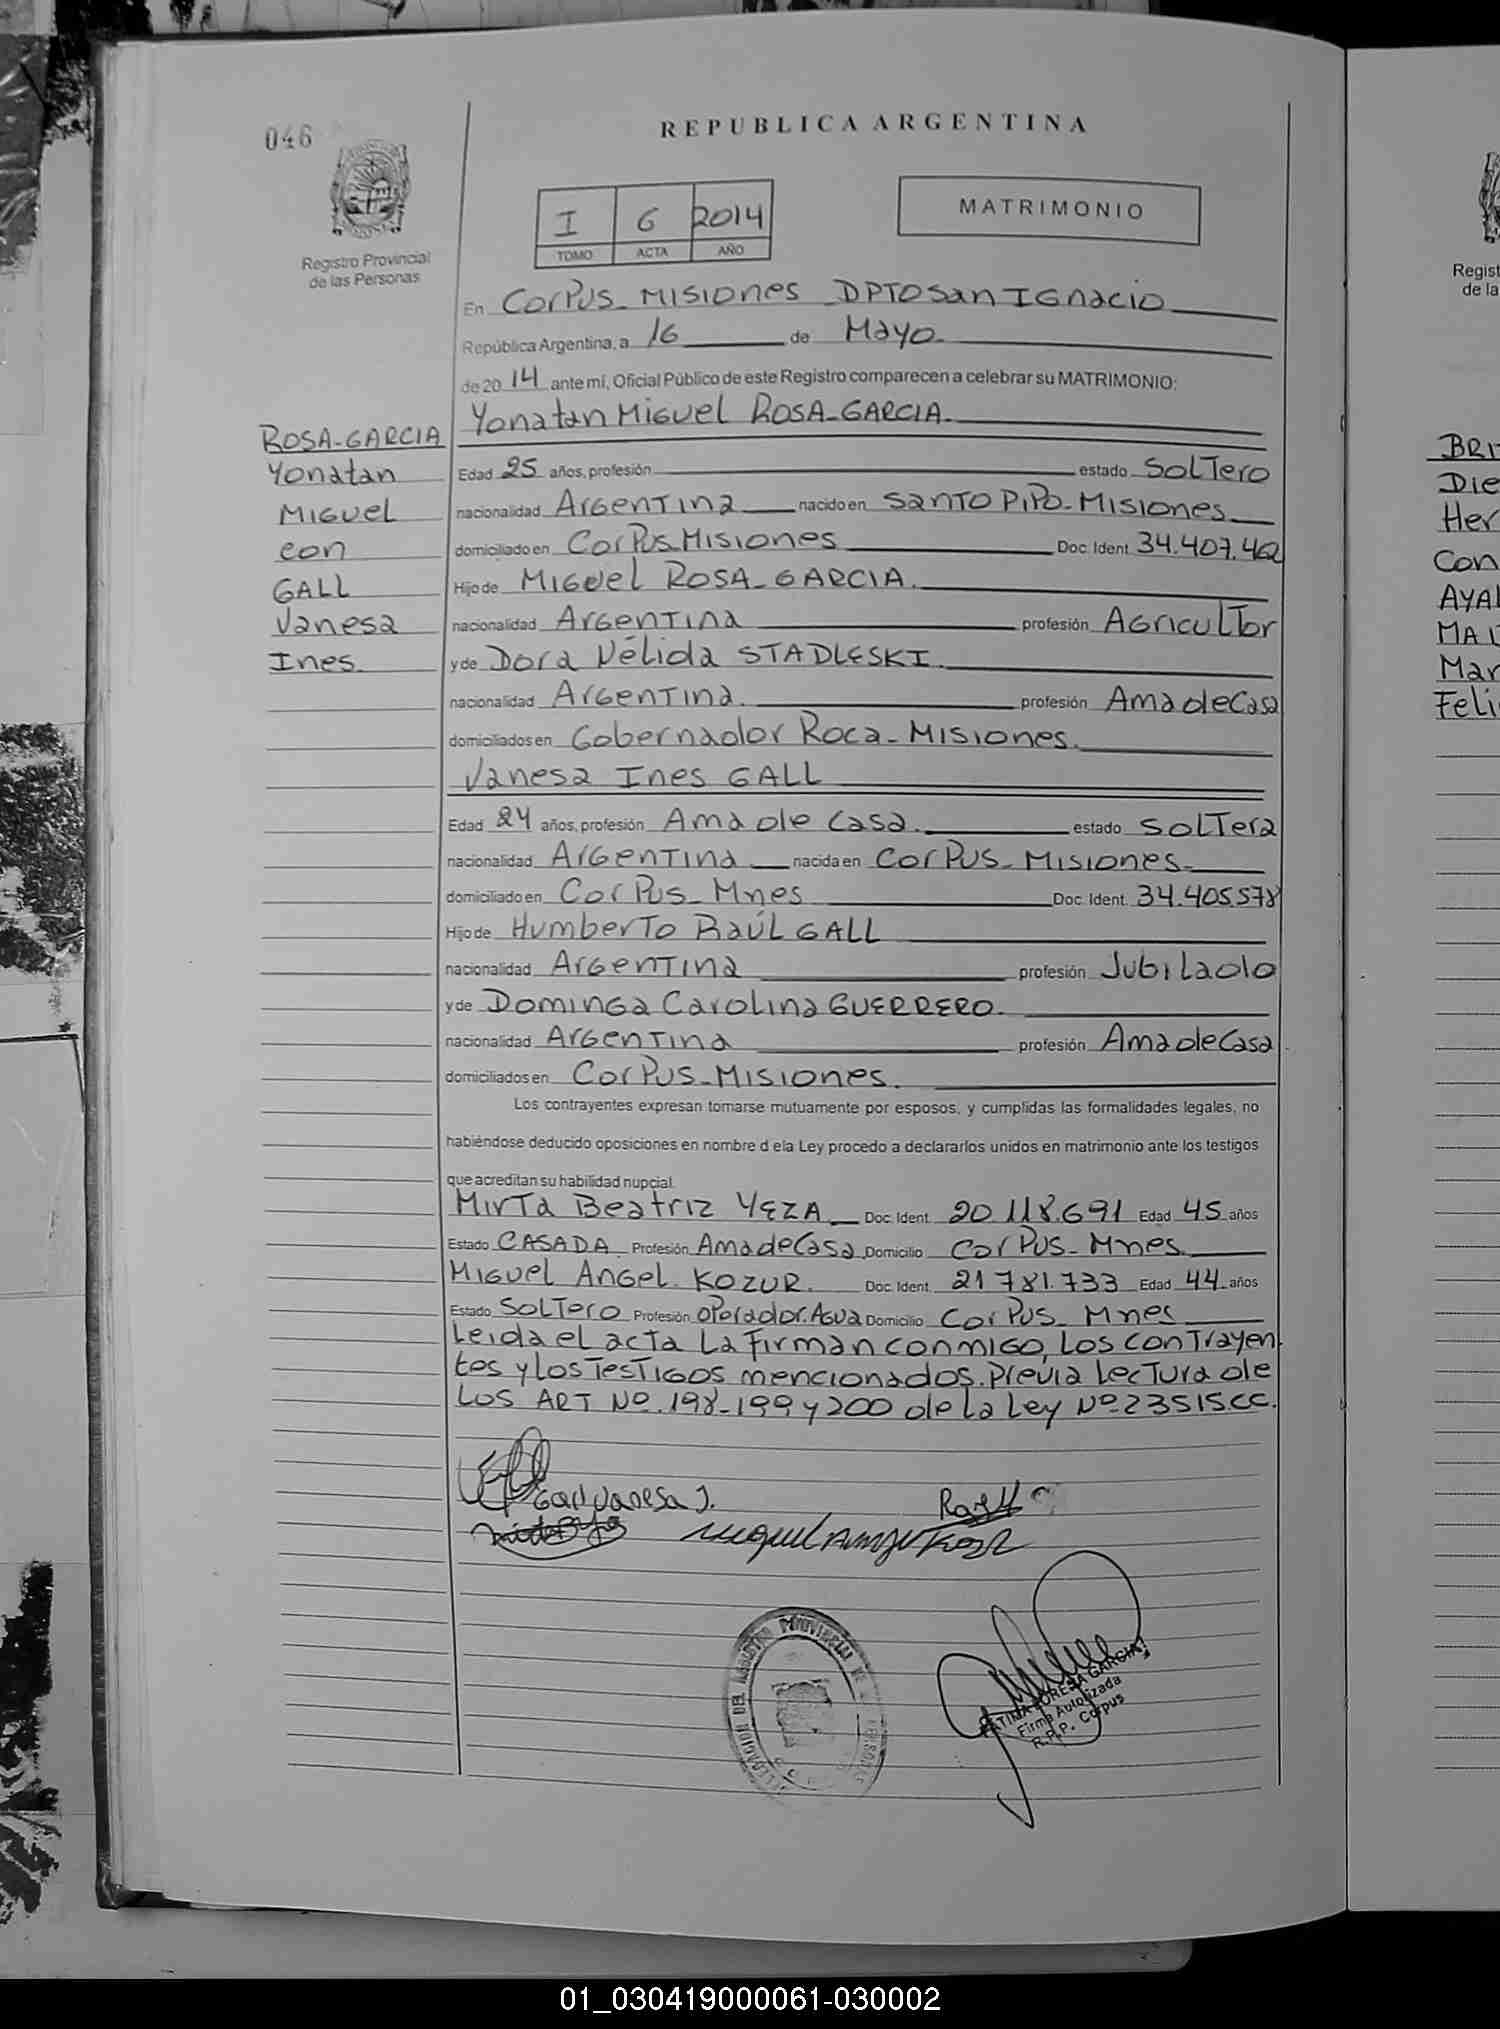 046
REPUBLICA ARGENTINA
Registro Provincial
de las Personas
I 6 2014
TOMO ACTA AÑO
MATRIMONIO
En Corpus_Misiones_DPTO San Ignacio
República Argentina, a 16 de Mayo.
de 20 14 ante mí, Oficial Público de este Registro comparecen a celebrar su MATRIMONIO:
Yonatan Miguel ROSA-GARCIA.
ROSA-GARCIA
Yonatan
Miguel
con
GALL
Vanesa
Ines.
Edad 25 años, profesión estado Soltero
nacionalidad Argentina nacido en Santo Pipo-Misiones
domiciliado en Corpus Misiones Doc. Ident. 34.407.462
Hijo de Miguel ROSA-GARCIA.
nacionalidad Argentina profesión Agricultor
y de Dora Nélida STADLESKI.
nacionalidad Argentina. profesión Ama de Casa
domiciliados en Gobernador Roca-Misiones.
Vanesa Ines GALL
Edad 24 años, profesión Ama de Casa. estado Soltera
nacionalidad Argentina nacida en Corpus-Misiones.
domiciliado en Corpus-Mnes Doc. Ident. 34.405.578
Hijo de Humberto Raúl GALL
nacionalidad Argentina profesión Jubilado
y de Dominga Carolina GUERRERO.
nacionalidad Argentina profesión Ama de Casa
domiciliados en Corpus-Misiones.
Los contrayentes expresan tomarse mutuamente por esposos, y cumplidas las formalidades legales, no
habiéndose deducido oposiciones en nombre d ela Ley procedo a declararlos unidos en matrimonio ante los testigos
que acreditan su habilidad nupcial.
Mirta Beatriz YEZA Doc. Ident. 20.118.691 Edad 45 años
Estado CASADA Profesión Ama de Casa Domicilio Corpus-Mnes.
Miguel Angel KOZUR. Doc. Ident. 21.781.733 Edad 44 años
Estado Soltero Profesión Operador.Agua Domicilio Corpus-Mnes
Leida el acta la firman conmigo, los contrayen
tes y los Testigos mencionados. Previa lectura de
los ART Nº.198-199 y 200 de la Ley Nº 23515 CC.
Gall Vanesa I.
Miguel Angel Kozur
GARCIA
Firma Autorizada
R.P.P. Corpus
Regist
de la
BRI
Die
Her
Con
AYAL
Mar
Feli
01_030419000061-030002